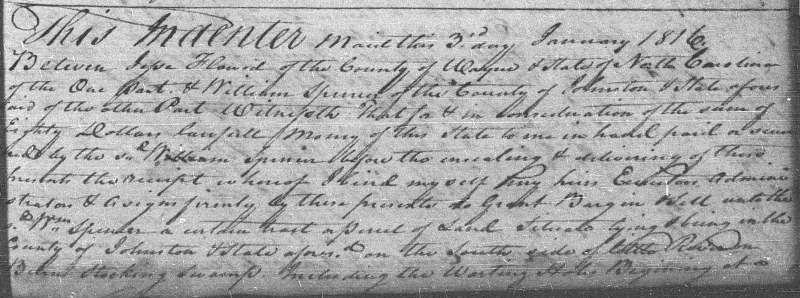 This Indenter Maid this 3rd day January 1816
Betwen Jesse Flowd of the County of Wayne & State of North Carolina
of the One Part & William Spencer of the County of Johnston & State afores
said of the other Part Witnesseth That for & in consideration of the sum of
Eighty Dollars lawfull Money of this State to me in hand paid or secur
by the sd William Spencer before the ensealing & delivering of these
presents the receipt whereof I bind my self my heirs Executors Adminis
strators & Asigns firmly by these presents do Grant Bargen Sell unto the
sd Wm Spencer a certain tract or parcel of Land Situate lying & being in the
County of Johnston & State aforesd on the South side of Little River on
Stocking Swamp Including the Beginning at a